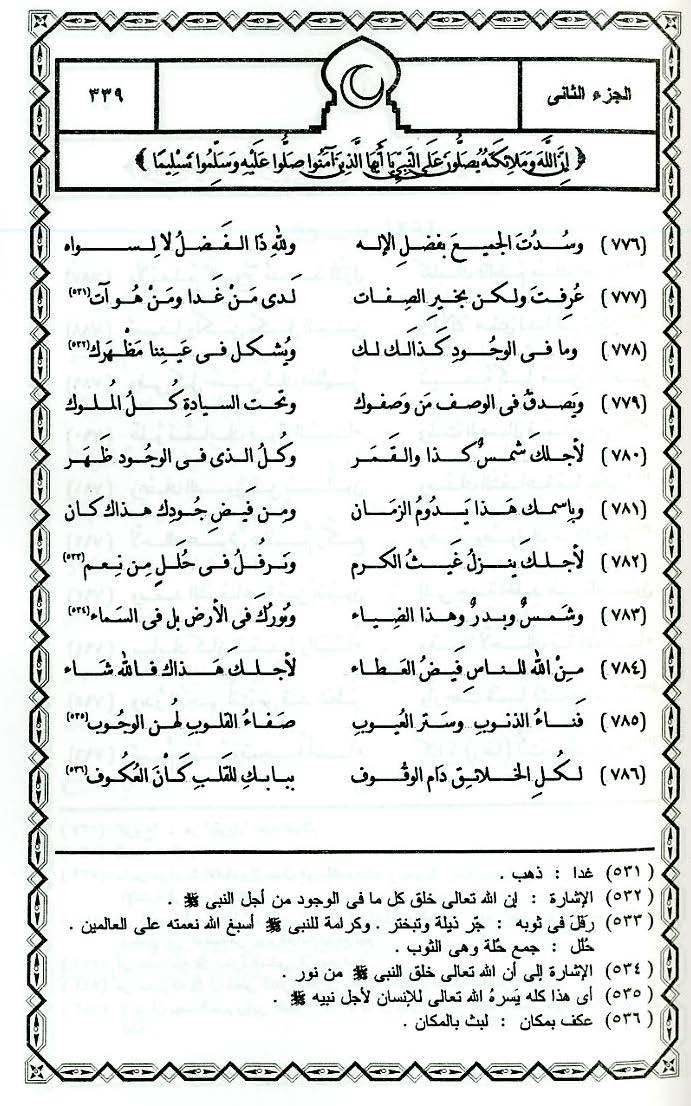 الجزء الثانى
٣٣٩
﴿ إِنَّ اللَّهَ وَمَلَائِكَتَهُ يُصَلُّونَ عَلَى النَّبِيِّ يَا أَيُّهَا الَّذِينَ آمَنُوا صَلُّوا عَلَيْهِ وَسَلِّمُوا تَسْلِيمًا ﴾
(٧٧٦) وسُدتَ الجميعَ بفضلِ الإله وللهِ ذا الـفَـضلُ لا لِـسـواه
(٧٧٧) عُرِفتَ ولكـن بخيرِ الصِفـات لَـدى مَـنْ غـدا ومَـنْ هُـو آت(٥٣١)
(٧٧٨) وما فى الوجُـودِ كـذالَـك لـك ويُشكـل فـى عَـينِنا مظْـهَرك(٥٣٢)
(٧٧٩) وبَصدقُ فى الوصف مَن وَصَفوك وتحـت السيـادةِ كُـلُ المُلـوك
(٧٨٠) لأجـلكَ شـمسٌ كـذا والقَـمَر وكُـلُ الـذى فـى الوجـود ظَـهَر
(٧٨١) وباسمك هَـذا يَـدُومُ الزمَـان ومِـن فَيضِ جُودِك هذاك كان
(٧٨٢) لأجـلكَ ينزلُ غَيـثُ الكـرم وتَـرفُـلُ فـى حُللٍ مِـن نِعـم(٥٣٣)
(٧٨٣) وشَمـسٌ وبـدرٌ وهـذا الضِياء ونُورُكَ فى الأرضِ بل فى السَماء(٥٣٤)
(٧٨٤) مِـنْ اللهِ للناسِ فَيضُ العَطـاء لأجـلكَ هَـذاك فـالله شَـاء
(٧٨٥) فَنـاءُ الذنـوبِ وسَـتر العُيـوبِ صَفـاءُ القلوبِ لهُن الوجُوب(٥٣٥)
(٧٨٦) لـكلِ الخـلائِقِ دَام الوقُـوف ببابـكِ للقَلـبِ كَـانَ العُكُوف(٥٣٦)
(٥٣١) غدا : ذهب .
(٥٣٢) الإشارة : إن الله تعالى خلق كل ما فى الوجود من أجل النبى ﷺ .
(٥٣٣) رفلَ فى ثوبه : جَر ذيلة وتبختر . وكرامة للنبى ﷺ أسبغ الله نعمته على العالمين .
حُلل : جمع حُلة وهى الثوب .
(٥٣٤) الإشارة إلى أن الله تعالى خلق النبى ﷺ من نور .
(٥٣٥) أى هذا كله يَسرهُ الله تعالى للإنسان لأجل نبيه ﷺ .
(٥٣٦) عكف بمكان : لبث بالمكان .